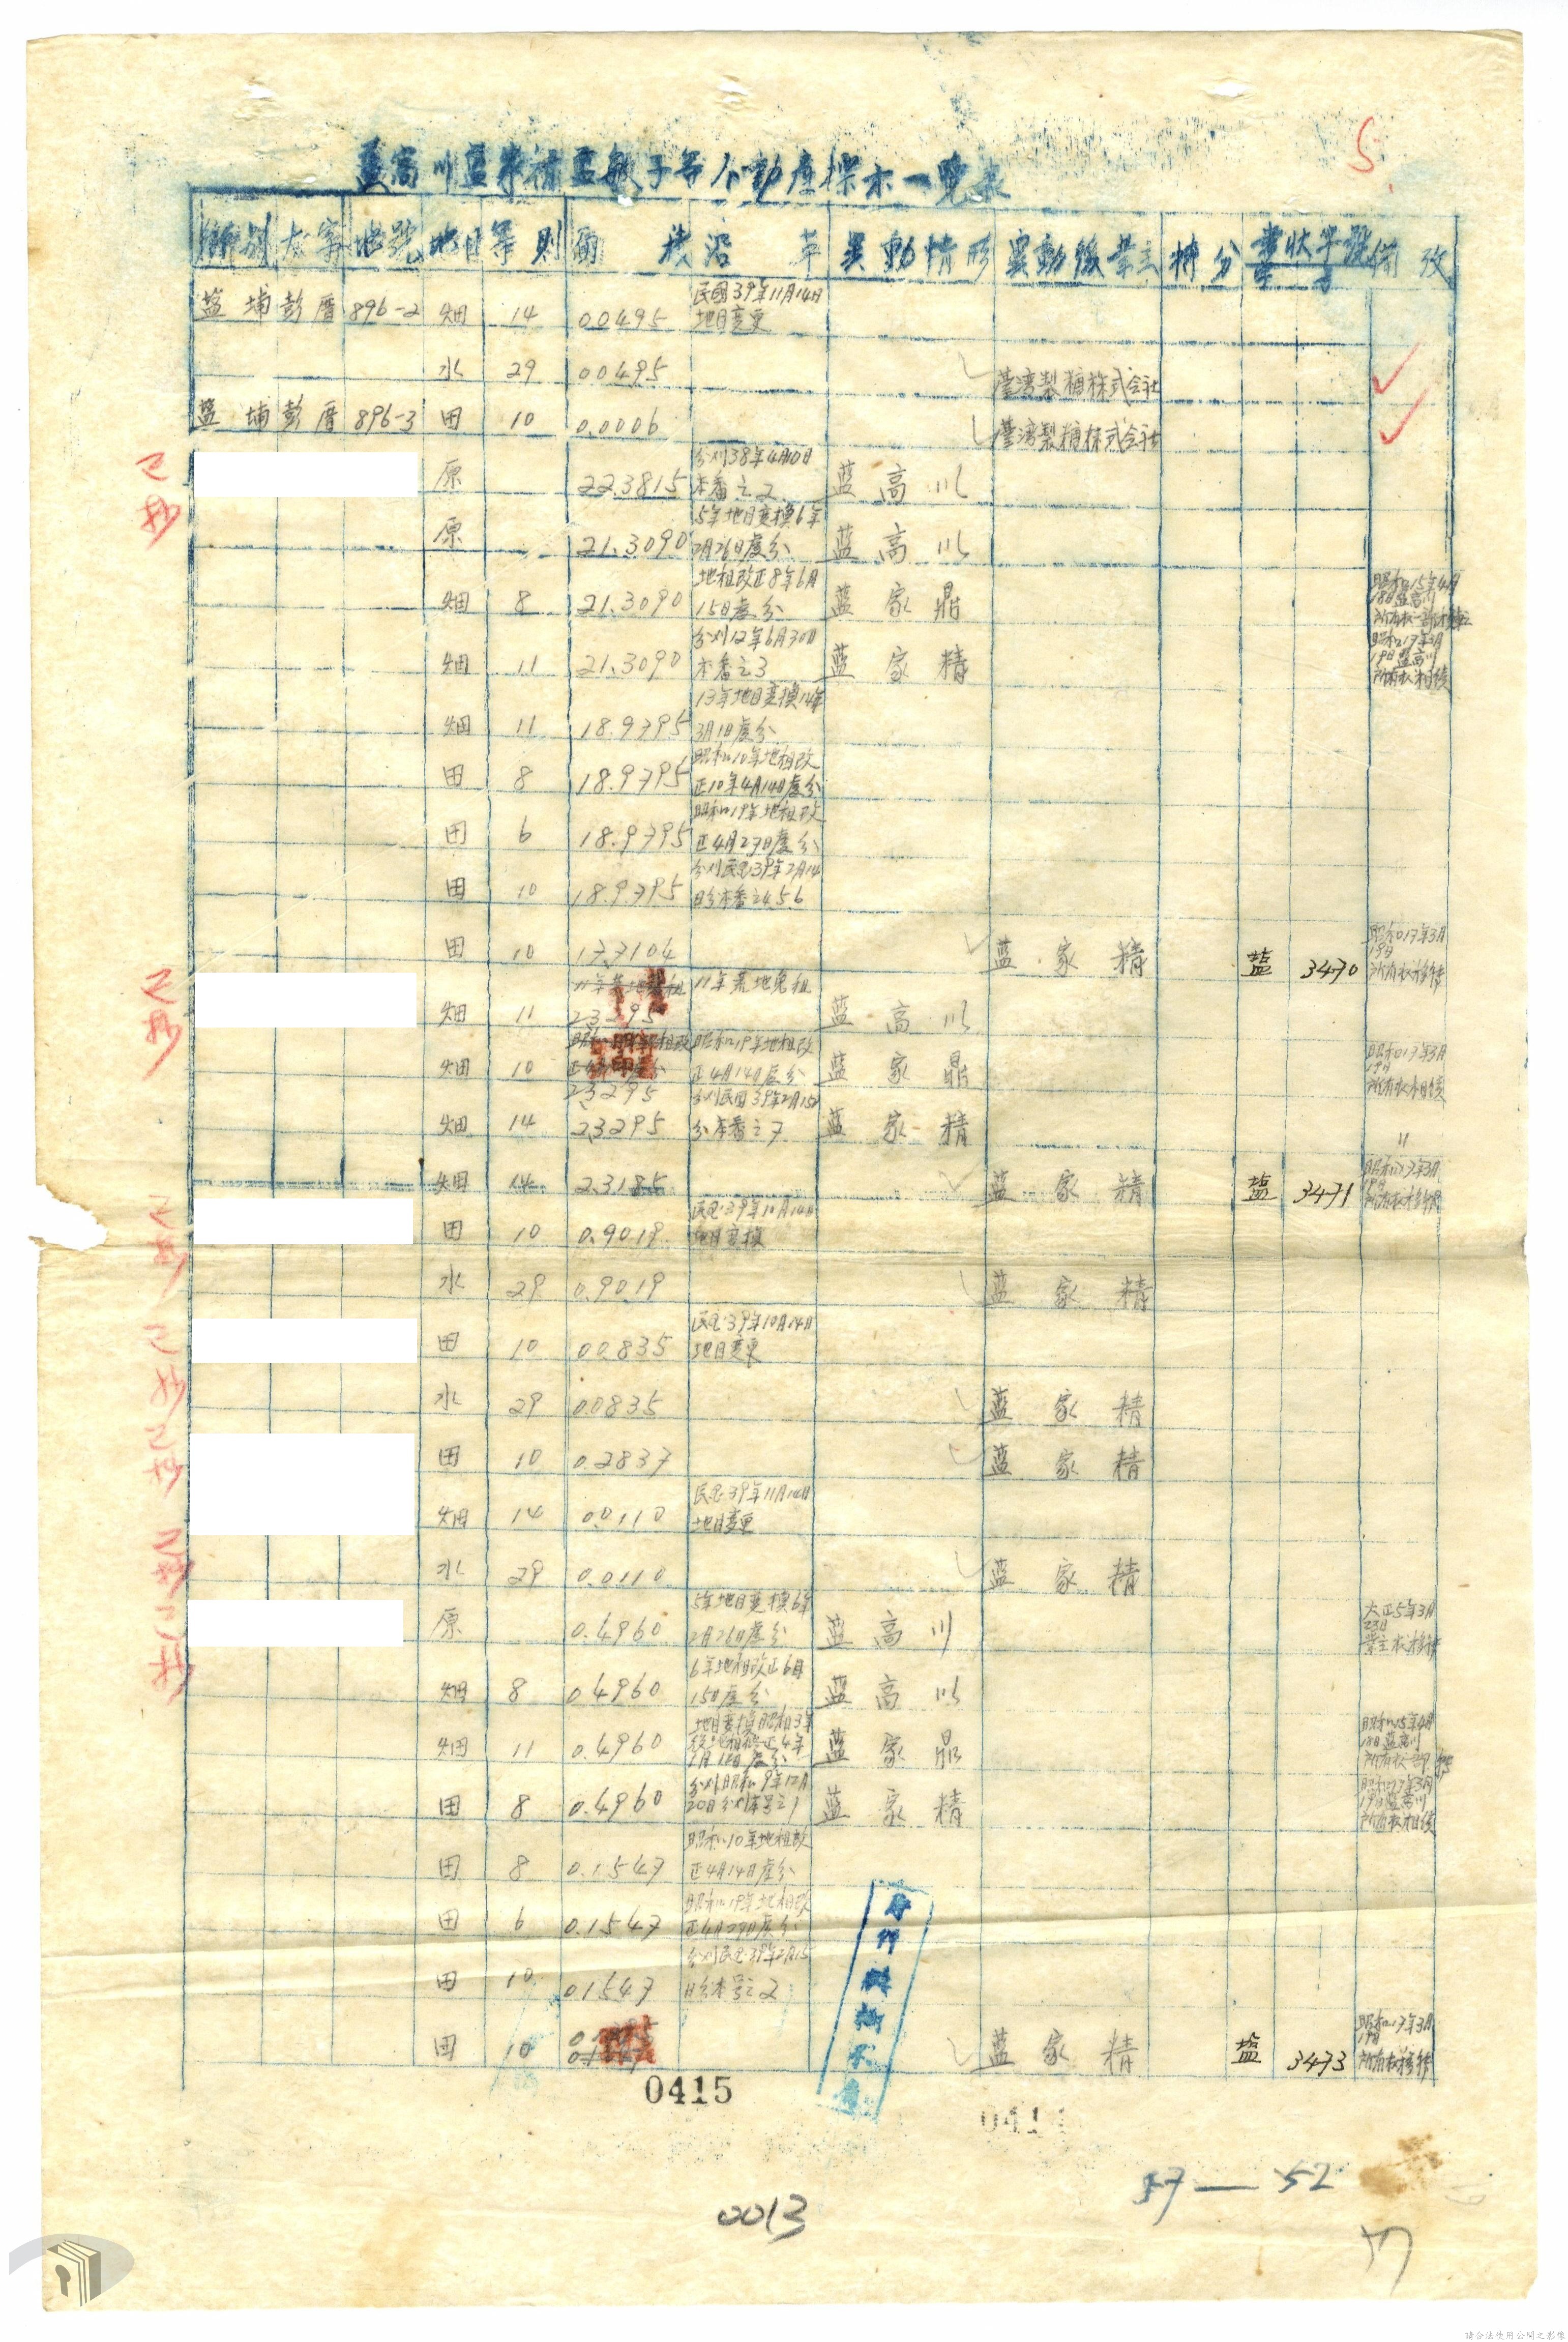 5.
藍高川藍家精藍敏子等不動產標木一覽表
鄉別 大字 地號 地目 等則 面積 沿革 異動情形 異動後業主 持分 書狀字號 備攷
字
民國39年11月14日
鹽埔 彭厝 896-2 畑 14 0.0495 地目变更
水 29 0.0495 臺湾製糖株式会社
鹽埔 彭厝 896-3 田 10 0.0006 臺湾製糖株式会社
已抄
分刈38年4月10日
原 22.3815 本番之2 藍高川
5年地目変換6年
原 21.3090 2月26日處分 藍高川
地租改正8年6月
畑 8 21.3090 15日處分 藍家鼎
昭和15年4月
18日藍高川
分刈12年6月30日
畑 11 21.3090 本番之3 藍家精
昭和17年3月
19日藍高川
所有权相続
13年地目変換14年
畑 11 18.9795 3月1日處分
昭和10年地租改
田 8 18.9795 正10年4月14日處分
昭和19年地租改
田 6 18.9795 正4月27日處分
分刈民国39年2月14
田 10 18.9795 日分本番之4.5.6
田 10 17.7104 藍家精 鹽 3470
昭和17年3月
19日
所有权移轉
已抄
11年荒地免租
畑 11 2.3295 藍高川
昭和19年地租改
畑 10 正4月14日處分 藍家鼎
2.3295
昭和17年3月
19日
所有权相続
分刈民国39年2月15日
畑 14 2.3295 分本番之7 藍家精 〃
畑 14 2.3185 藍家精 鹽 3471
昭和17年3月
19日
所有权移轉
已抄
民国39年10月14日
田 10 0.9019 地目変換
水 29 0.9019 藍家精
已抄
民国39年10月14日
田 10 0.0835 地目变更
水 29 0.0835 藍家精
已抄
田 10 0.2837 藍家精
民国39年11月14日
畑 14 0.0110 地目変更
已抄
水 29 0.0110 藍家精
已抄
5年地目変換6年
原 0.4960 2月26日處分 藍高川
大正5年3月
23日
業主权移轉
6年地租改正6月
畑 8 0.4960 15日處分 藍高川
地目変換昭和3年
畑 11 0.4960 1月18日處分 藍家鼎
昭和15年4月
18日藍高川
分刈昭和9年12月
田 8 0.4960 20日分刈本号之1 藍家精
昭和17年3月
19日藍高川
所有权相続
昭和10年地租改
田 8 0.1547 正4月14日處分
昭和19年地租改
田 6 0.1547 正4月27日處分
分刈民国39年2月15
田 10 0.1547 日分本号之2
田 10 藍家精 鹽 3473
昭和17年3月
19日
所有权移轉
0415
0013
57—52
請合法使用公開之影像